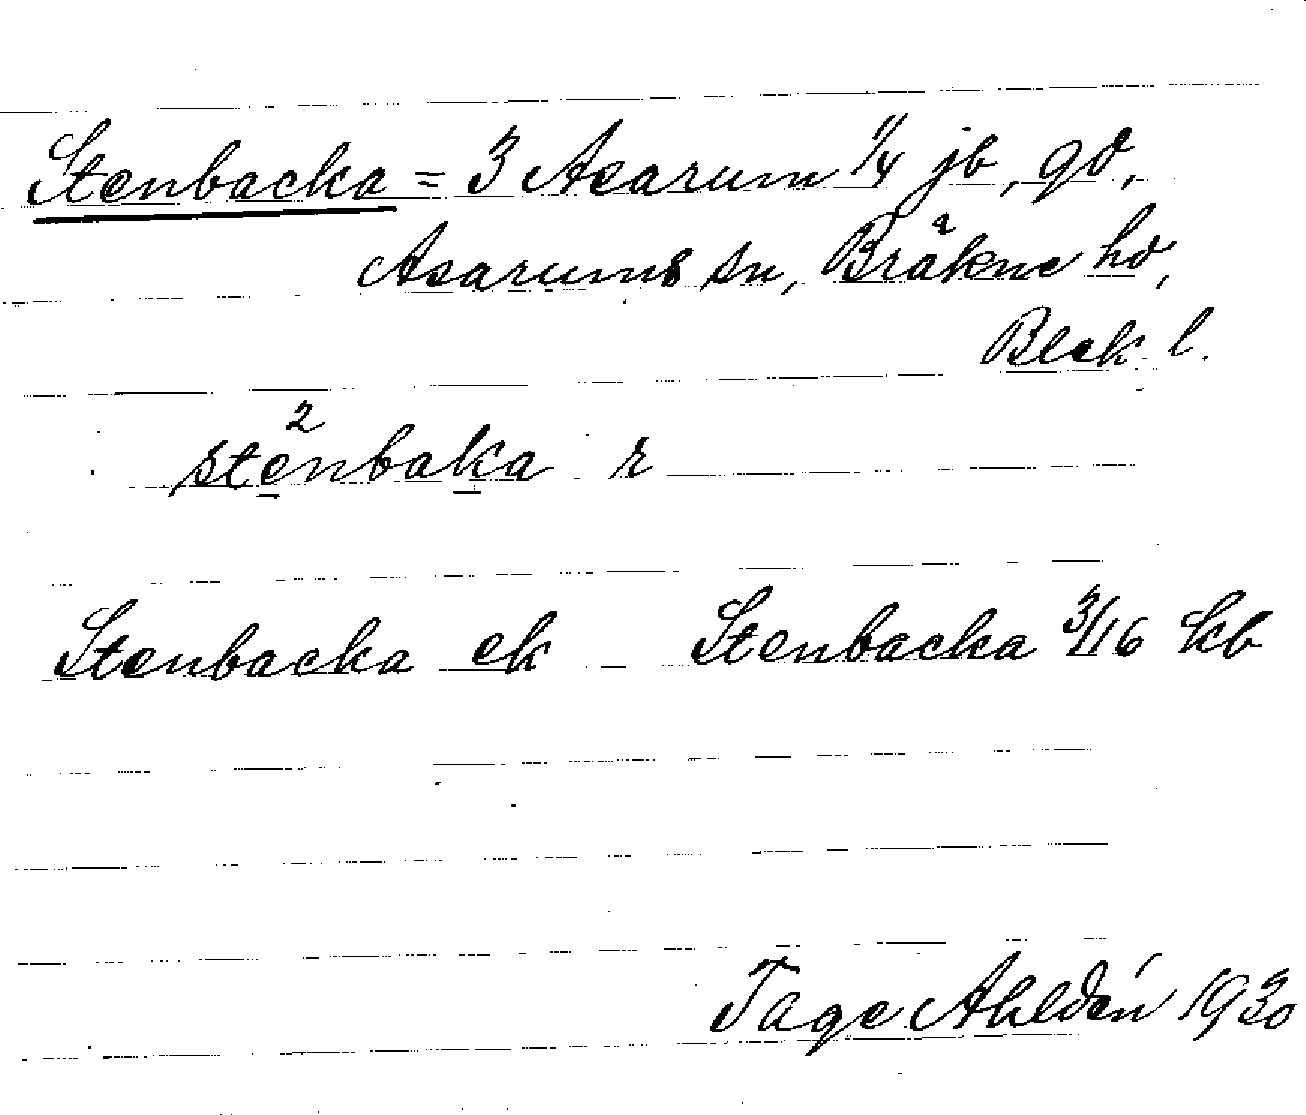 Stenbacka = 3 Asarum 1/4 jb, gd,
Asarums sn, Bräkne hd,
Blek. l.
ste²nbaka r
Stenbacka ek – Stenbacka 3/16 kb
Tage Ahldén 1930